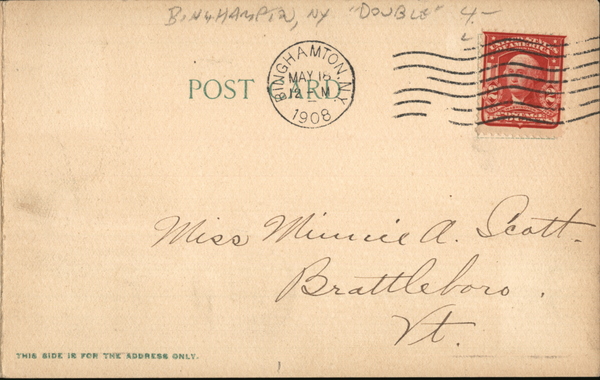 BINGHAMPTON, NY "DOUBLE" 4-
POST CARD
BINGHAMTON, N.Y.
MAY 18
12 PM
1908
UNITED STATES
OF AMERICA
Miss Minnie A. Scott.
Brattleboro.
Vt.
THIS SIDE IS FOR THE ADDRESS ONLY.